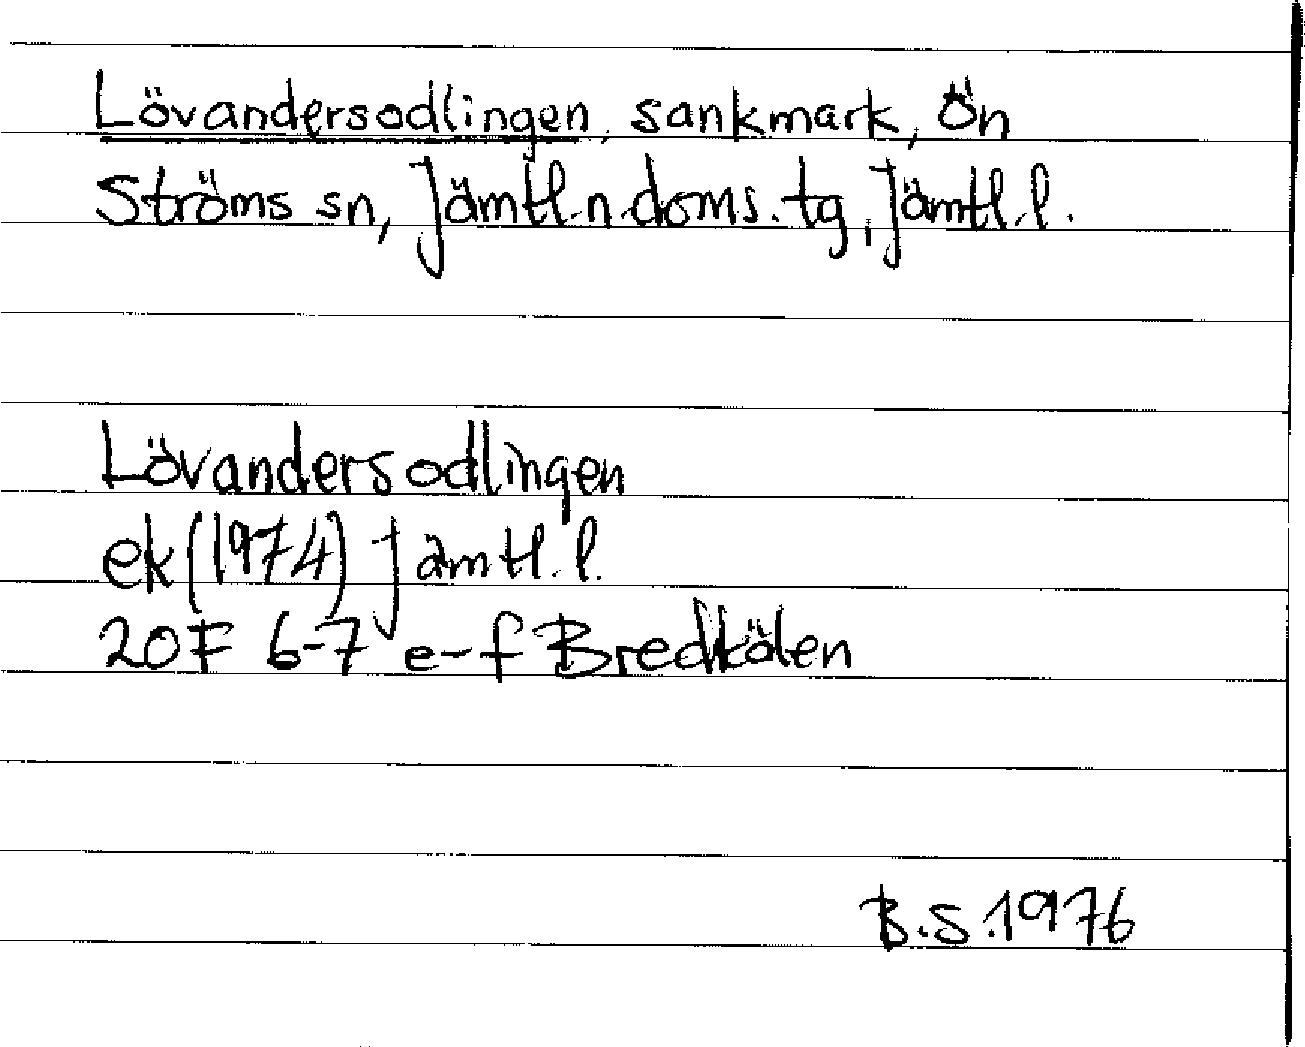 Lövandersodlingen, sankmark, Ön
Ströms sn, Jämtl.n.doms.tg, Jämtl.l.
Lövandersodlingen
ek (1974) Jämtl.l.
20F 6-7 e-f Bredkälen
B.S.1976